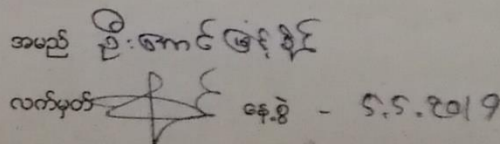 အမည် ဦးအောင်မြင့်စိုင်
လက်မှတ် နေ့စွဲ - 5.5.2019